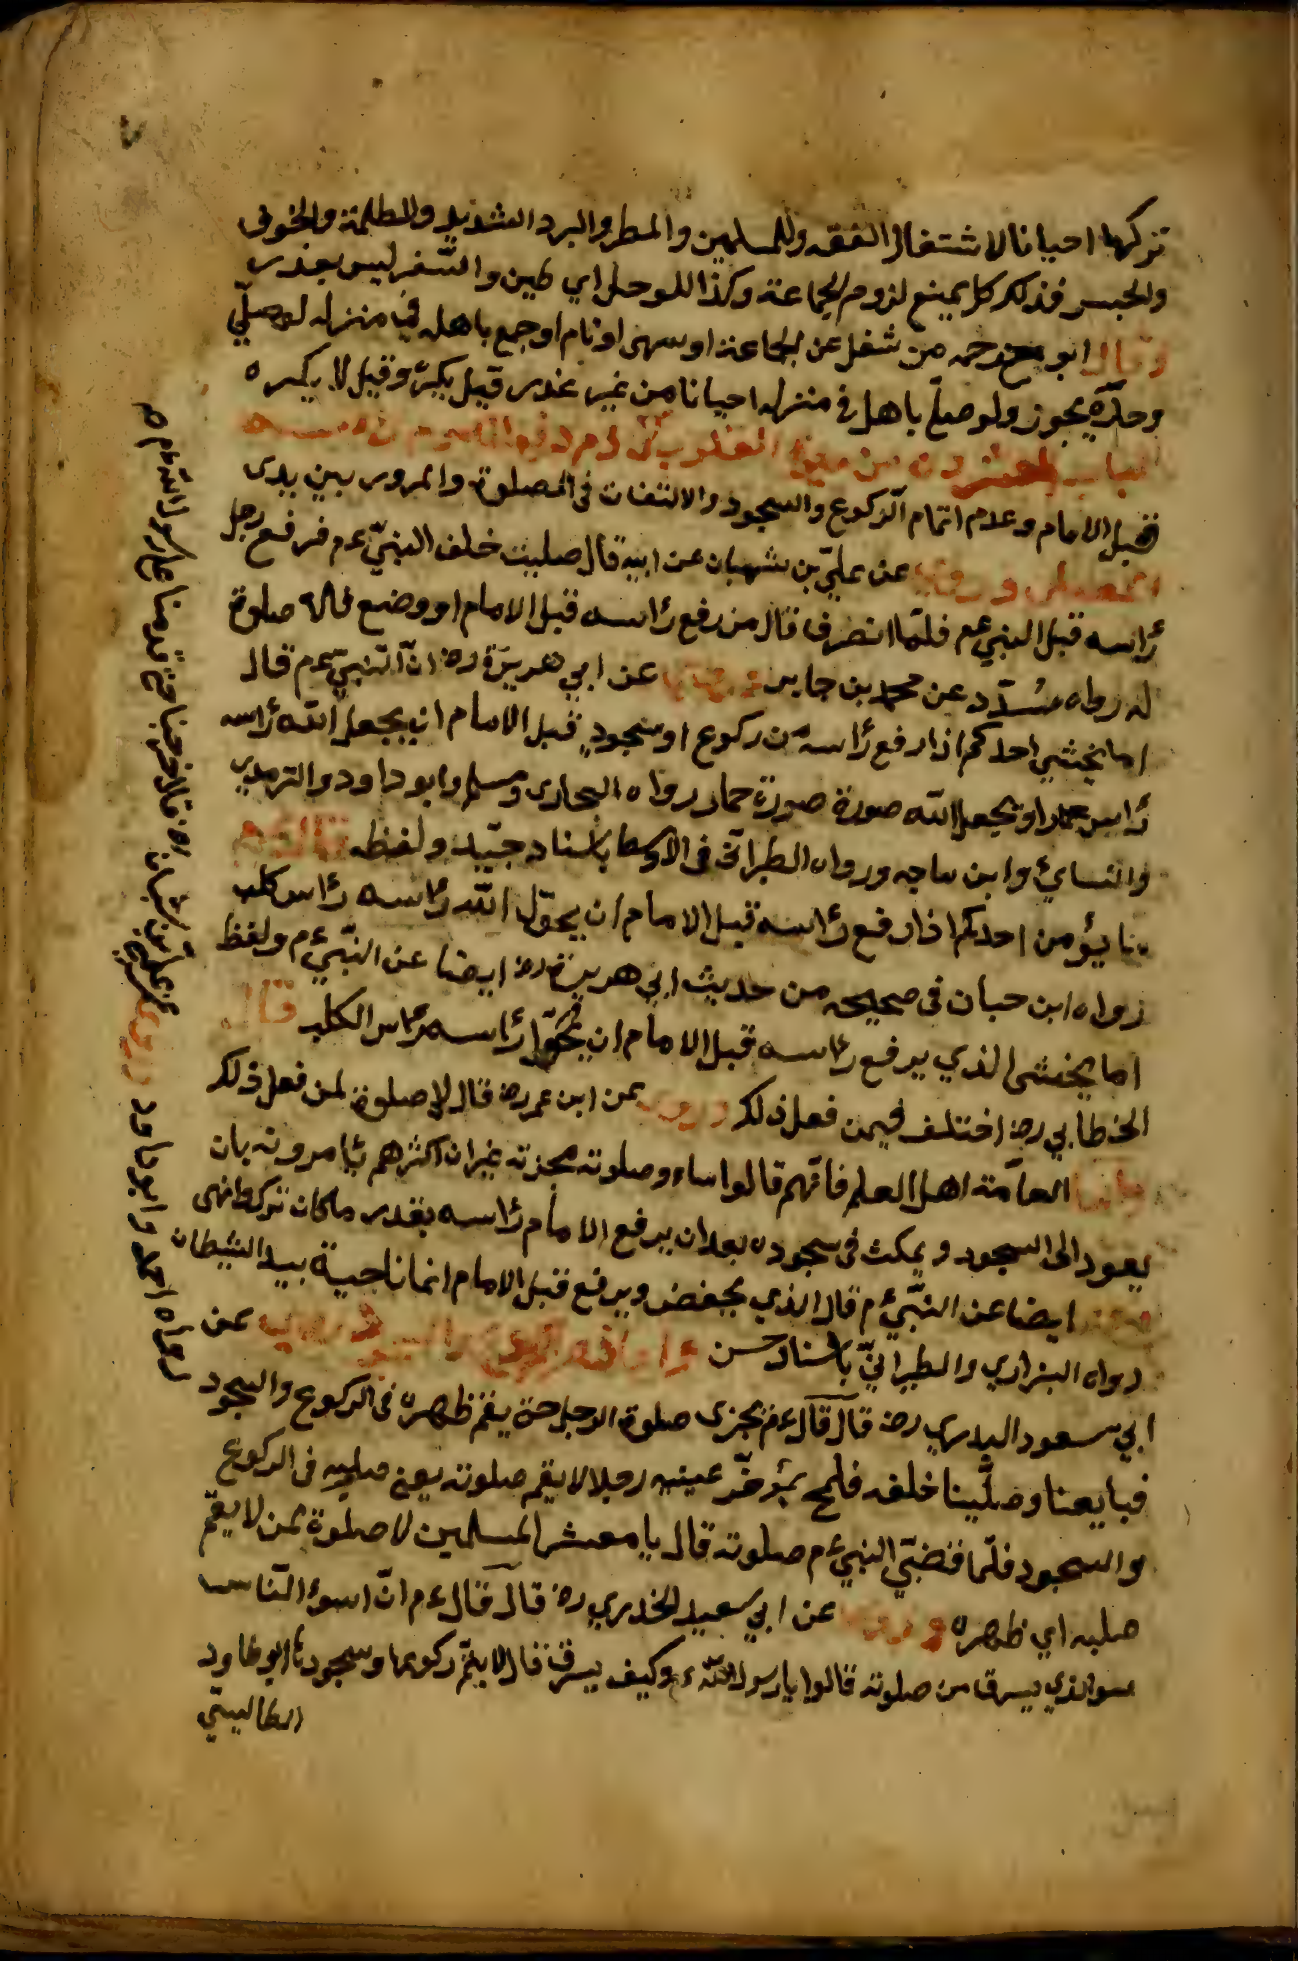 ٧
تركها احيانا لاشتغال الفقه وللمسلمين والمطر والبرد الشديد والظلمة والخوف
والحبس فذلك كل يمنع لزوم الجماعة وكذا اللوحل اي طين والسّفر ليس بعذر
وقال ابو رحمه من شغل عن الجماعة او سهى او نام او جمع باهله في منزله ليصلّي
وحدّه يجوز ولو صلّ باهل في منزله احيانا من غير عذر قيل يكره وقيل لا يكره
الباب العشرون من الذنوب في رفع المأموم رأسه
قبل الامام وعدم اتمام الرّكوع والسجود والالتفات في الصلوة والمرور بين يدى
المصلى وروى عن عليّ بن شيبان عن ابيه قال صليت خلف النبيّ ءم فرفع رجل
رأسه قبل النبي ءم فلمّا انصرف قال من رفع رأسه قبل الامام او وضع فلا صلوة
له رواه مسدّد عن محمد بن جابر وروى عن ابي هريرة رض انّ النبيّ ءم قال
اما يخشى احدكم اذا رفع رأسه من ركوع او سجود قبل الامام ان يجعل اللّه رأسه
رأس حمار او يجعل اللّه صورة صورة حمار رواه البخارى ومسلم وابو داود والترمذى
والنسائي وابن ماجه ورواه الطبرانى فى الاوسط باسناد جيّد ولفظه قال ءم
ما يؤمن احدكم اذا رفع رأسه قبل الامام ان يحوّل اللّه رأسه رأس كلب
رواه ابن حبان فى صحيحه من حديث ابي هريرة رض ايضا عن النبّي ءم ولفظ
اما يخشى الذي يرفع رأسه قبل الامام ان يحوّل رأسه رأس الكلب قال
الخطابي رض اختلف فيمن فعل ذلك وروى عن ابن عمر رض قال لا صلوة لمن فعل ذلك
وامّا العامّة اهل العلم فانّهم قالوا اساء وصلوته مجزته غير ان اكثرهم يأمرونه بان
يعود الى السجود ويمكث فى سجوده بعد ان يرفع الامام رأسه بقدر ما كان ترك انتهى
وعنه ايضا عن النبّي ءم قال الذي يخفض ويرفع قبل الامام انما ناصية بيد الشيطان
رواه البزارى والطبرانىّ باسناد حسن عن
ابي مسعود البدري رض قال قال ءم لا يجزى صلوة الرجل حتى يقم ظهره فى الركوع والسجود
فبايعنا وصلّينا خلفه فلمح بمؤخّر عينيه رجلا لا يقيم صلوته يعنى صلبه فى الركوع
والسجود فلمّا قضى النبي ءم صلوته قال يا معشر المسلمين لا صلوة لمن لا يقم
صلبه اي ظهره وروى عن ابي سعيد الخدري رض قال قال ءم انّ اسوء النّاس
سو الذي يسرق من صلوته قالوا يا رسول اللّه وكيف يسرق قال لا يتمّ ركوعها وسجودها ابو طاود
الطاليسّي
رواه احمد وابو داود وروى عن علي بن شيبان رض قال خرجنا حتى قدمنا على رسول الله ءم